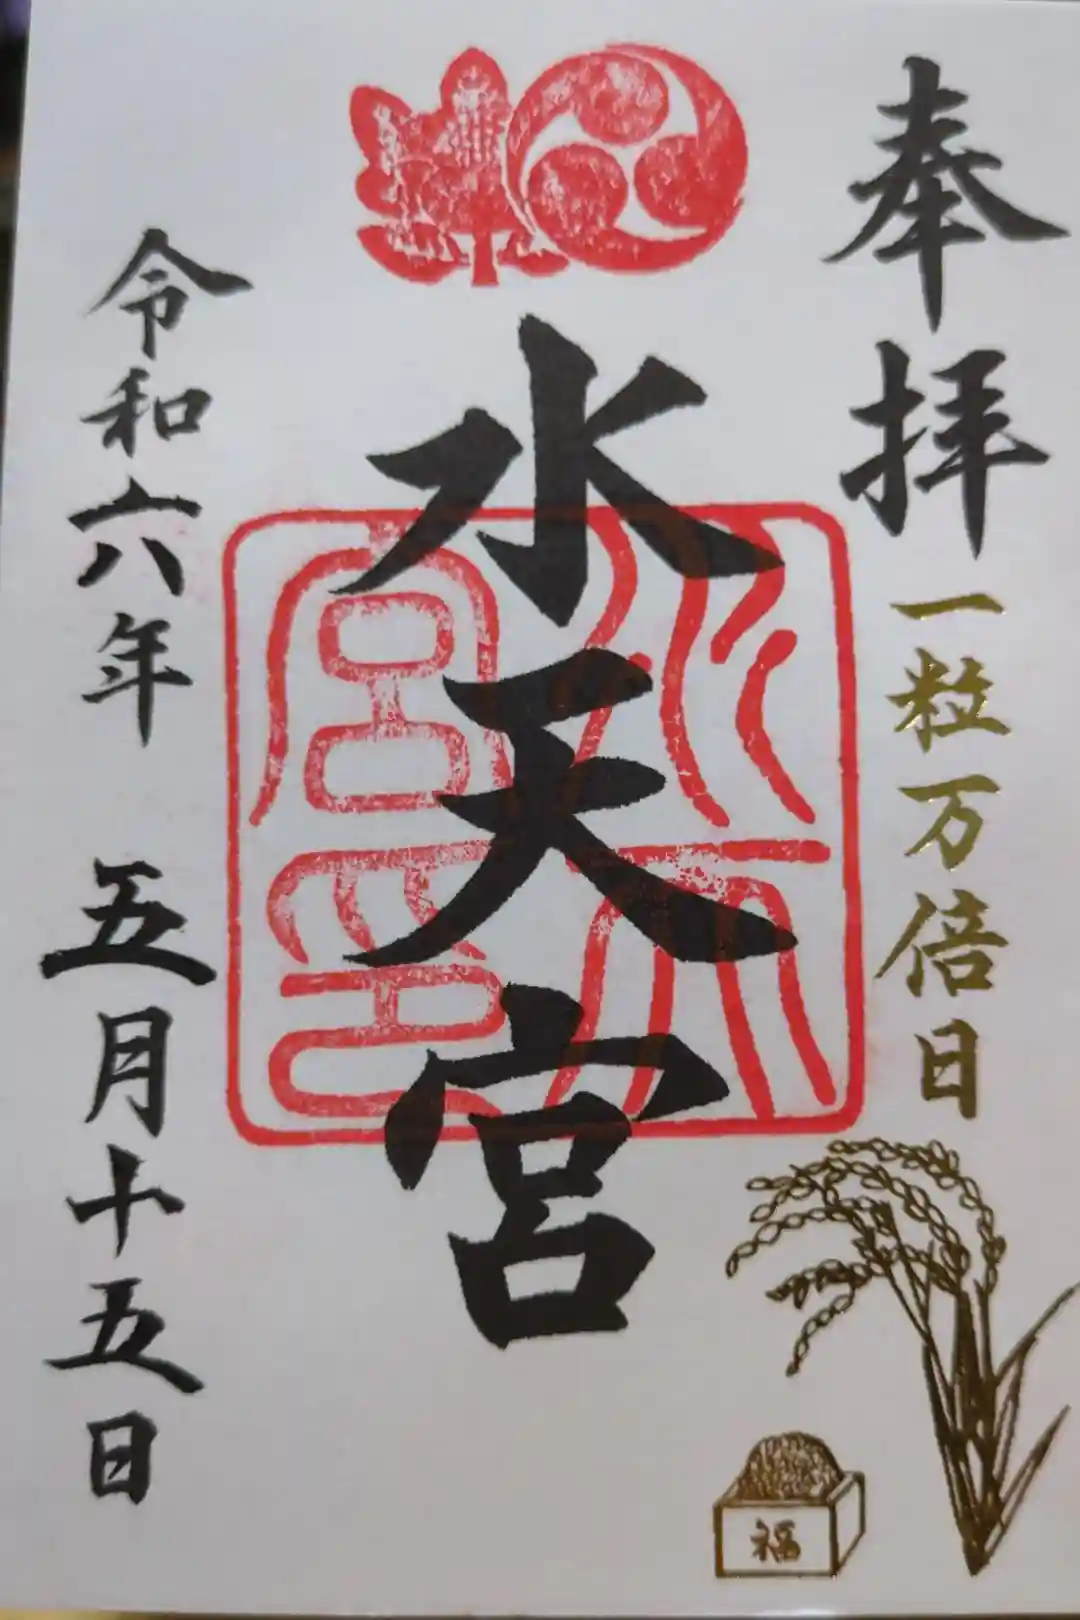 奉拝
一粒万倍日
福
水天宮
水天宮印
令和六年 五月十五日